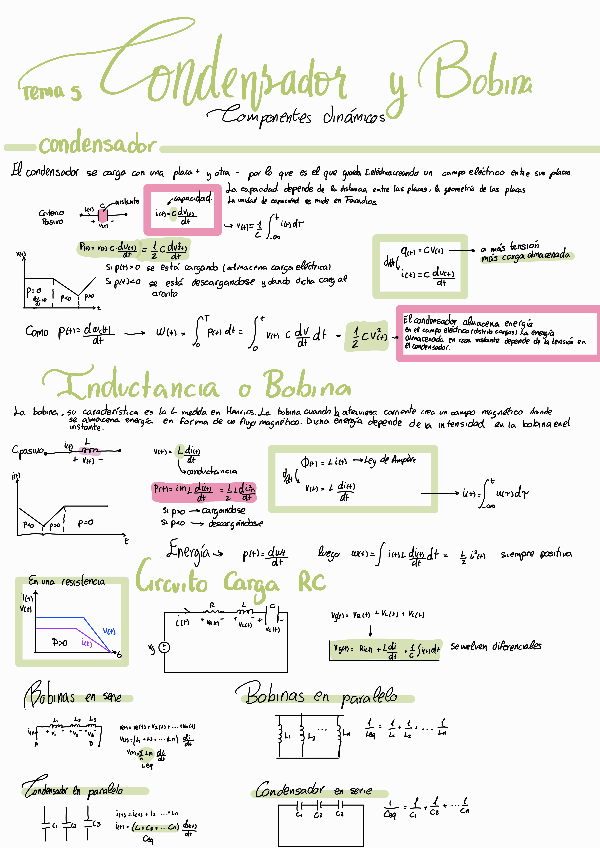 Tema 5 Condensador y Bobina
Componentes dinámicos
condensador
El condensador se carga con una placa + y otra - por lo que es el que guarda creando un campo eléctrico entre sus placas
La capacidad depende de la distancia entre las placas, la geometría de las placas
La unidad de capacidad es mide en Faradios
Criterio Pasivo
i(t) C aislante
+ v(t) -
capacidad
i(t) = C dv(t)/dt
→ v(t) = 1/C ∫ i(t) dτ
P(t) = v(t) C · dv(t)/dt = 1/2 C dv²(t)/dt
q(t) = C v(t)
d/dt
i(t) = C dv(t)/dt
a más tensión
más carga almacenada
Si p(t) > 0 se está cargando (almacena carga eléctrica)
Si p(t) < 0 se está descargandose y dando dicha carga al
v(t)
P=0
P<0
P>0
t
Como p(t) = dw(t)/dt → w(t) = ∫₀ᵀ P(t) dt = ∫₀ᵗ v(t) C dv/dt dt = 1/2 C v²(t) →
El condensador almacena energía
en el campo eléctrico (distrito cargas) La energía
almacenada en cada instante depende de la tensión en
el condensador.
Inductancia o Bobina
La bobina, su característica es la L medida en Henrios. La bobina cuando la atraviesa corriente crea un campo magnético donde
se almacena energía en forma de un flujo magnético. Dicha energía depende de la intensidad en la bobina en el
instante.
C pasivo
i(t) L
+ v(t) -
v(t) = L di(t)/dt
conductancia
P(t) = i(t) L di(t)/dt = 1/2 L di²(t)/dt
Si p>0 → cargandose
Si p<0 → descargandose
Φ(t) = L i(t) → Ley de Ampère
d/dt
v(t) = L di(t)/dt
→ i(t) = ∫ v(τ) dτ
i(t)
P<0 P>0 P=0
t
Energía → p(t) = dw/dt luego w(t) = ∫ i(t) L di(t)/dt dt = 1/2 i²(t) siempre positiva
En una resistencia
i(t)
v(t)
P>0
v(t)
i(t)
Circuito Carga RC
R L C
i(t) + vR(t) - + vL(t) - vC(t)
Vg
Vg(t) = VR(t) + VL(t) + VC(t)
Vg(t) = R i(t) + L di/dt + 1/C ∫ i(t) dt se vuelven diferenciales
Bobinas en serie
L1 L2 L3
v(t) = v1(t) + v2(t) + ... vn(t)
v(t) = (L1 + L2 + ... Ln) di/dt
Leq
Bobinas en paralelo
L1 L2 ... Ln
1/Leq = 1/L1 + 1/L2 + ... 1/Ln
Condensador en paralelo
C1 C2 C3
i(t) = i1 + i2 + ... in
i(t) = (C1 + C2 + ... Cn) dv(t)/dt
Ceq
Condensador en serie
C1 C2 C2
1/Ceq = 1/C1 + 1/C2 + ... 1/Cn